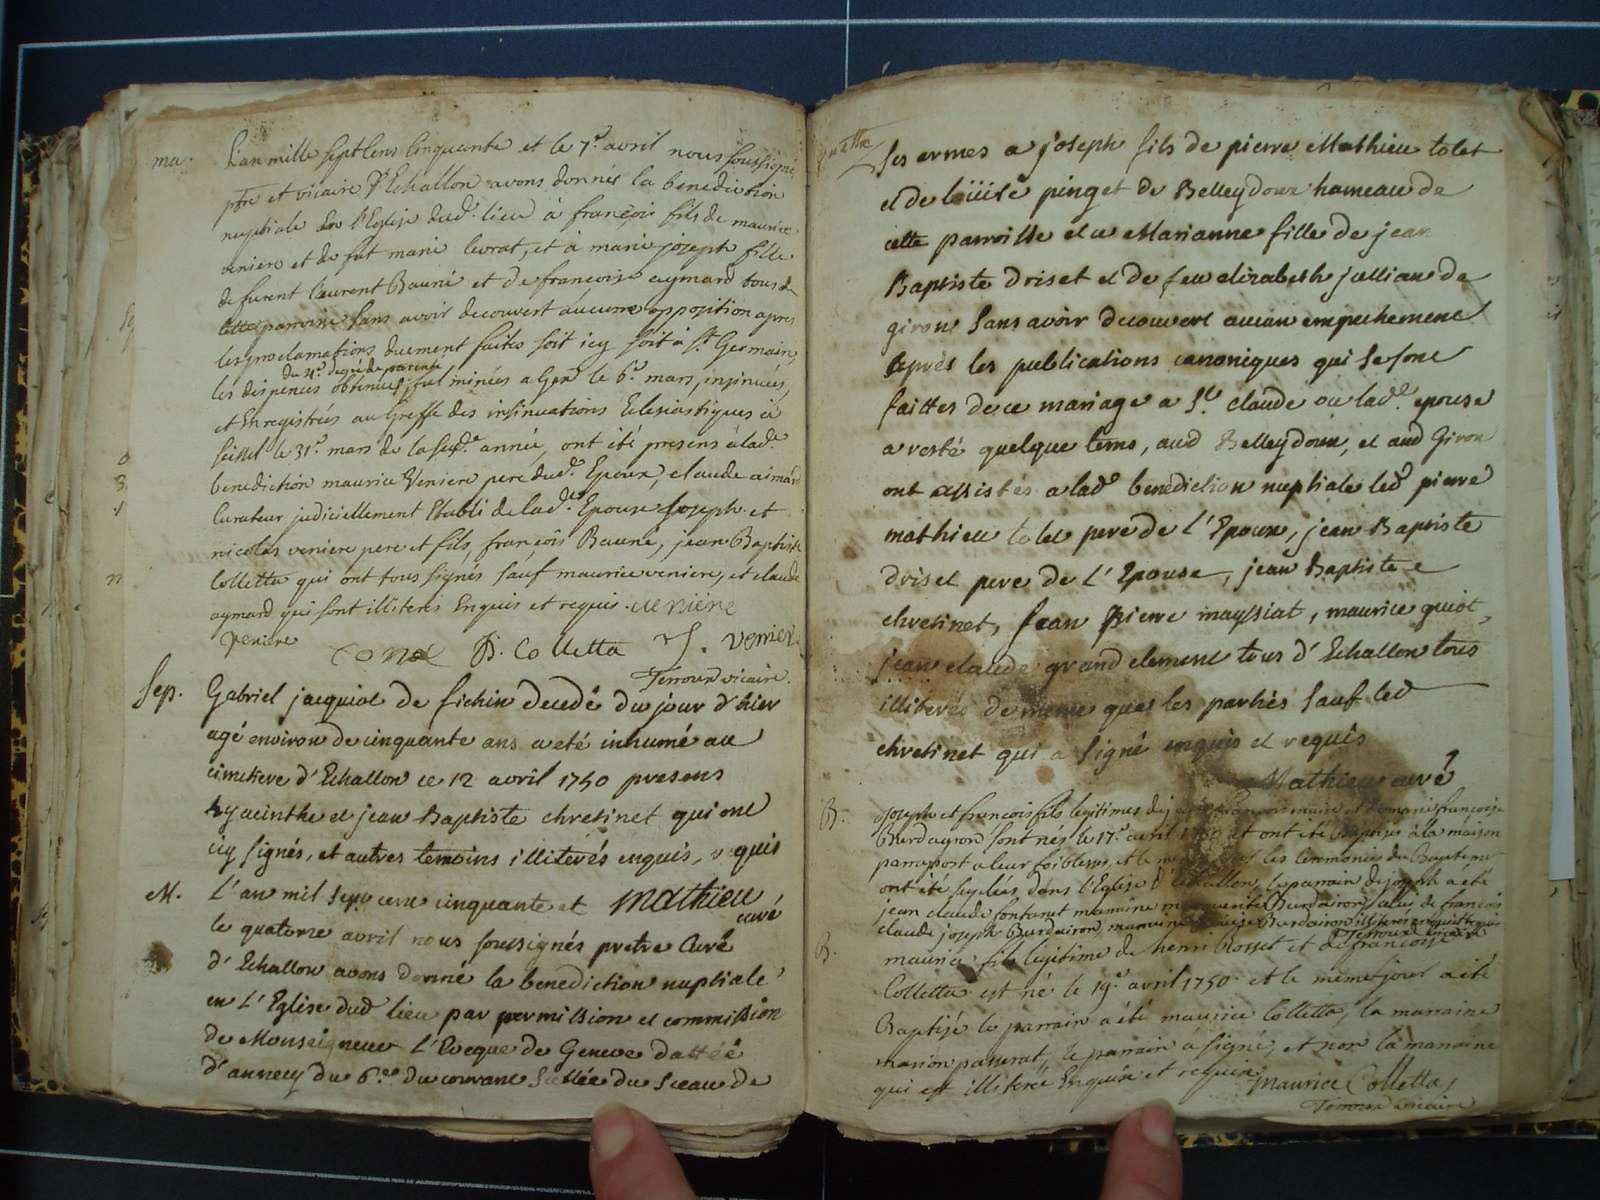 ma. L'an mille sept cens cinquante et le 7e avril nous soussigné
ptre et vicaire d'Echallon avons donnés la benediction
nuptiale en l'Eglise dud. lieu à françois fils de maurice
veniere et de fut marie levrat, et à marie joseph fille
de furent laurent Bauné et de francoise aymard tous de
cette parroisse sans avoir decouvert aucune opposition apres
les proclamations duement faites soit icy soit à St Germain,
du 4e degré de parenté
les dispences obtenues fulminées a Gex le 6e mars, insinuées,
et Enregistrées au Greffe des insinuations Eclesiastiques à
seissel le 31e mars de la susd.e année, ont été presens à lad.e
benediction maurice Veniere pere dud.t Epoux, claude aimard
Curateur judiciellement Etabli de lad.e Epouse Joseph et
nicolas veniere pere et fils, françois Bauné, jean Baptiste
Colletta qui ont tous signés sauf maurice veniere, et claude
aymard qui sont illiterés Enquis et requis. veniere
veniere B. Colletta J. venier
Terroux vicaire.
Sep. Gabriel jacquiot de fichin decedé du jour d'hier
agé environ de cinquante ans a eté inhumé au
cimetiere d'Echallon ce 12 avril 1750 presens
hyacinthe et jean Baptiste chretinet qui ont
icy signés, et autres temoins illiterés enquis, requis
M. L'an mil sept cent cinquante et Mathieu curé
le quatorze avril nous soussignés pretre Curé
d'Echallon avons donné la benediction nuptiale
en L'Eglise dud lieu par permission et commission
de Monseigneur L'Eveque de Geneve dattée
d'annecy du 6.e du courant scellée du sceau de
ses armes a joseph fils de pierre Mathieu tolet
et de loüise pinget de Belleydoux hameau de
cette parroisse et a Marianne fille de jean
Baptiste driset et de feu elizabeth jullian de
giron sans avoir decouvert aucun empechement
après les publications canoniques qui se sont
faittes de ce mariage a St claude ou lad.e epouse
a resté quelque tems, aud Belleydoux, et aud Giron
ont assistés a lad.e benediction nuptiale led pierre
mathieu tolet pere de l'Epoux, jean Baptiste
driset pere de L'Epouse, jean Baptiste
chretinet, jean pierre mayssiat, maurice guiot,
jean claude grand clement tous d'Echallon tous
illiterés de meme que les parties sauf led
chretinet qui a signé enquis et requis
Mathieu curé
B. Joseph et francois fils legitimes de françoise
Burdayron sont nés le 17e avril 1750 et ont eté baptisés à la maison
par raport a leur foiblesse, et le les ceremonies du Bapteme
ont été supléés dans l'Eglise d'Echallon, le parrain de joseph a été
jean claude fontanet marraine marguerite Burdairon, celui de francois
claude joseph Burdairon, marraine Burdairon illiterés enquis et requis
Terroux vicaire
B. maurice fils legitime de henri Rosset et de francoise
Colletta est né le 19e avril 1750 et le même jour a été
Baptisé le parrain a été maurice Colletta, la marraine
marion passerat, le parrain à signé, et non la marraine
qui est illiterée Enquise et requise maurice Colletta
Terroux vicaire